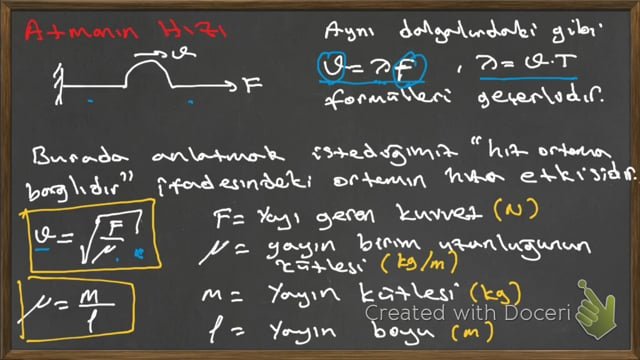 Atmanın Hızı
ϑ
F
Aynı dalgalardaki gibi
ϑ = λ F , λ = ϑ . T
formülleri geçerlidir.
Burada anlatmak istediğimiz "hız ortama
bağlıdır" ifadesindeki ortamın hıza etkisidir.
ϑ = √F/μ
F = Yayı geren kuvvet (N)
μ = yayın birim uzunluğunun
kütlesi (kg/m)
μ = m/l
m = Yayın kütlesi (kg)
l = Yayın boyu (m)
Created with Doceri